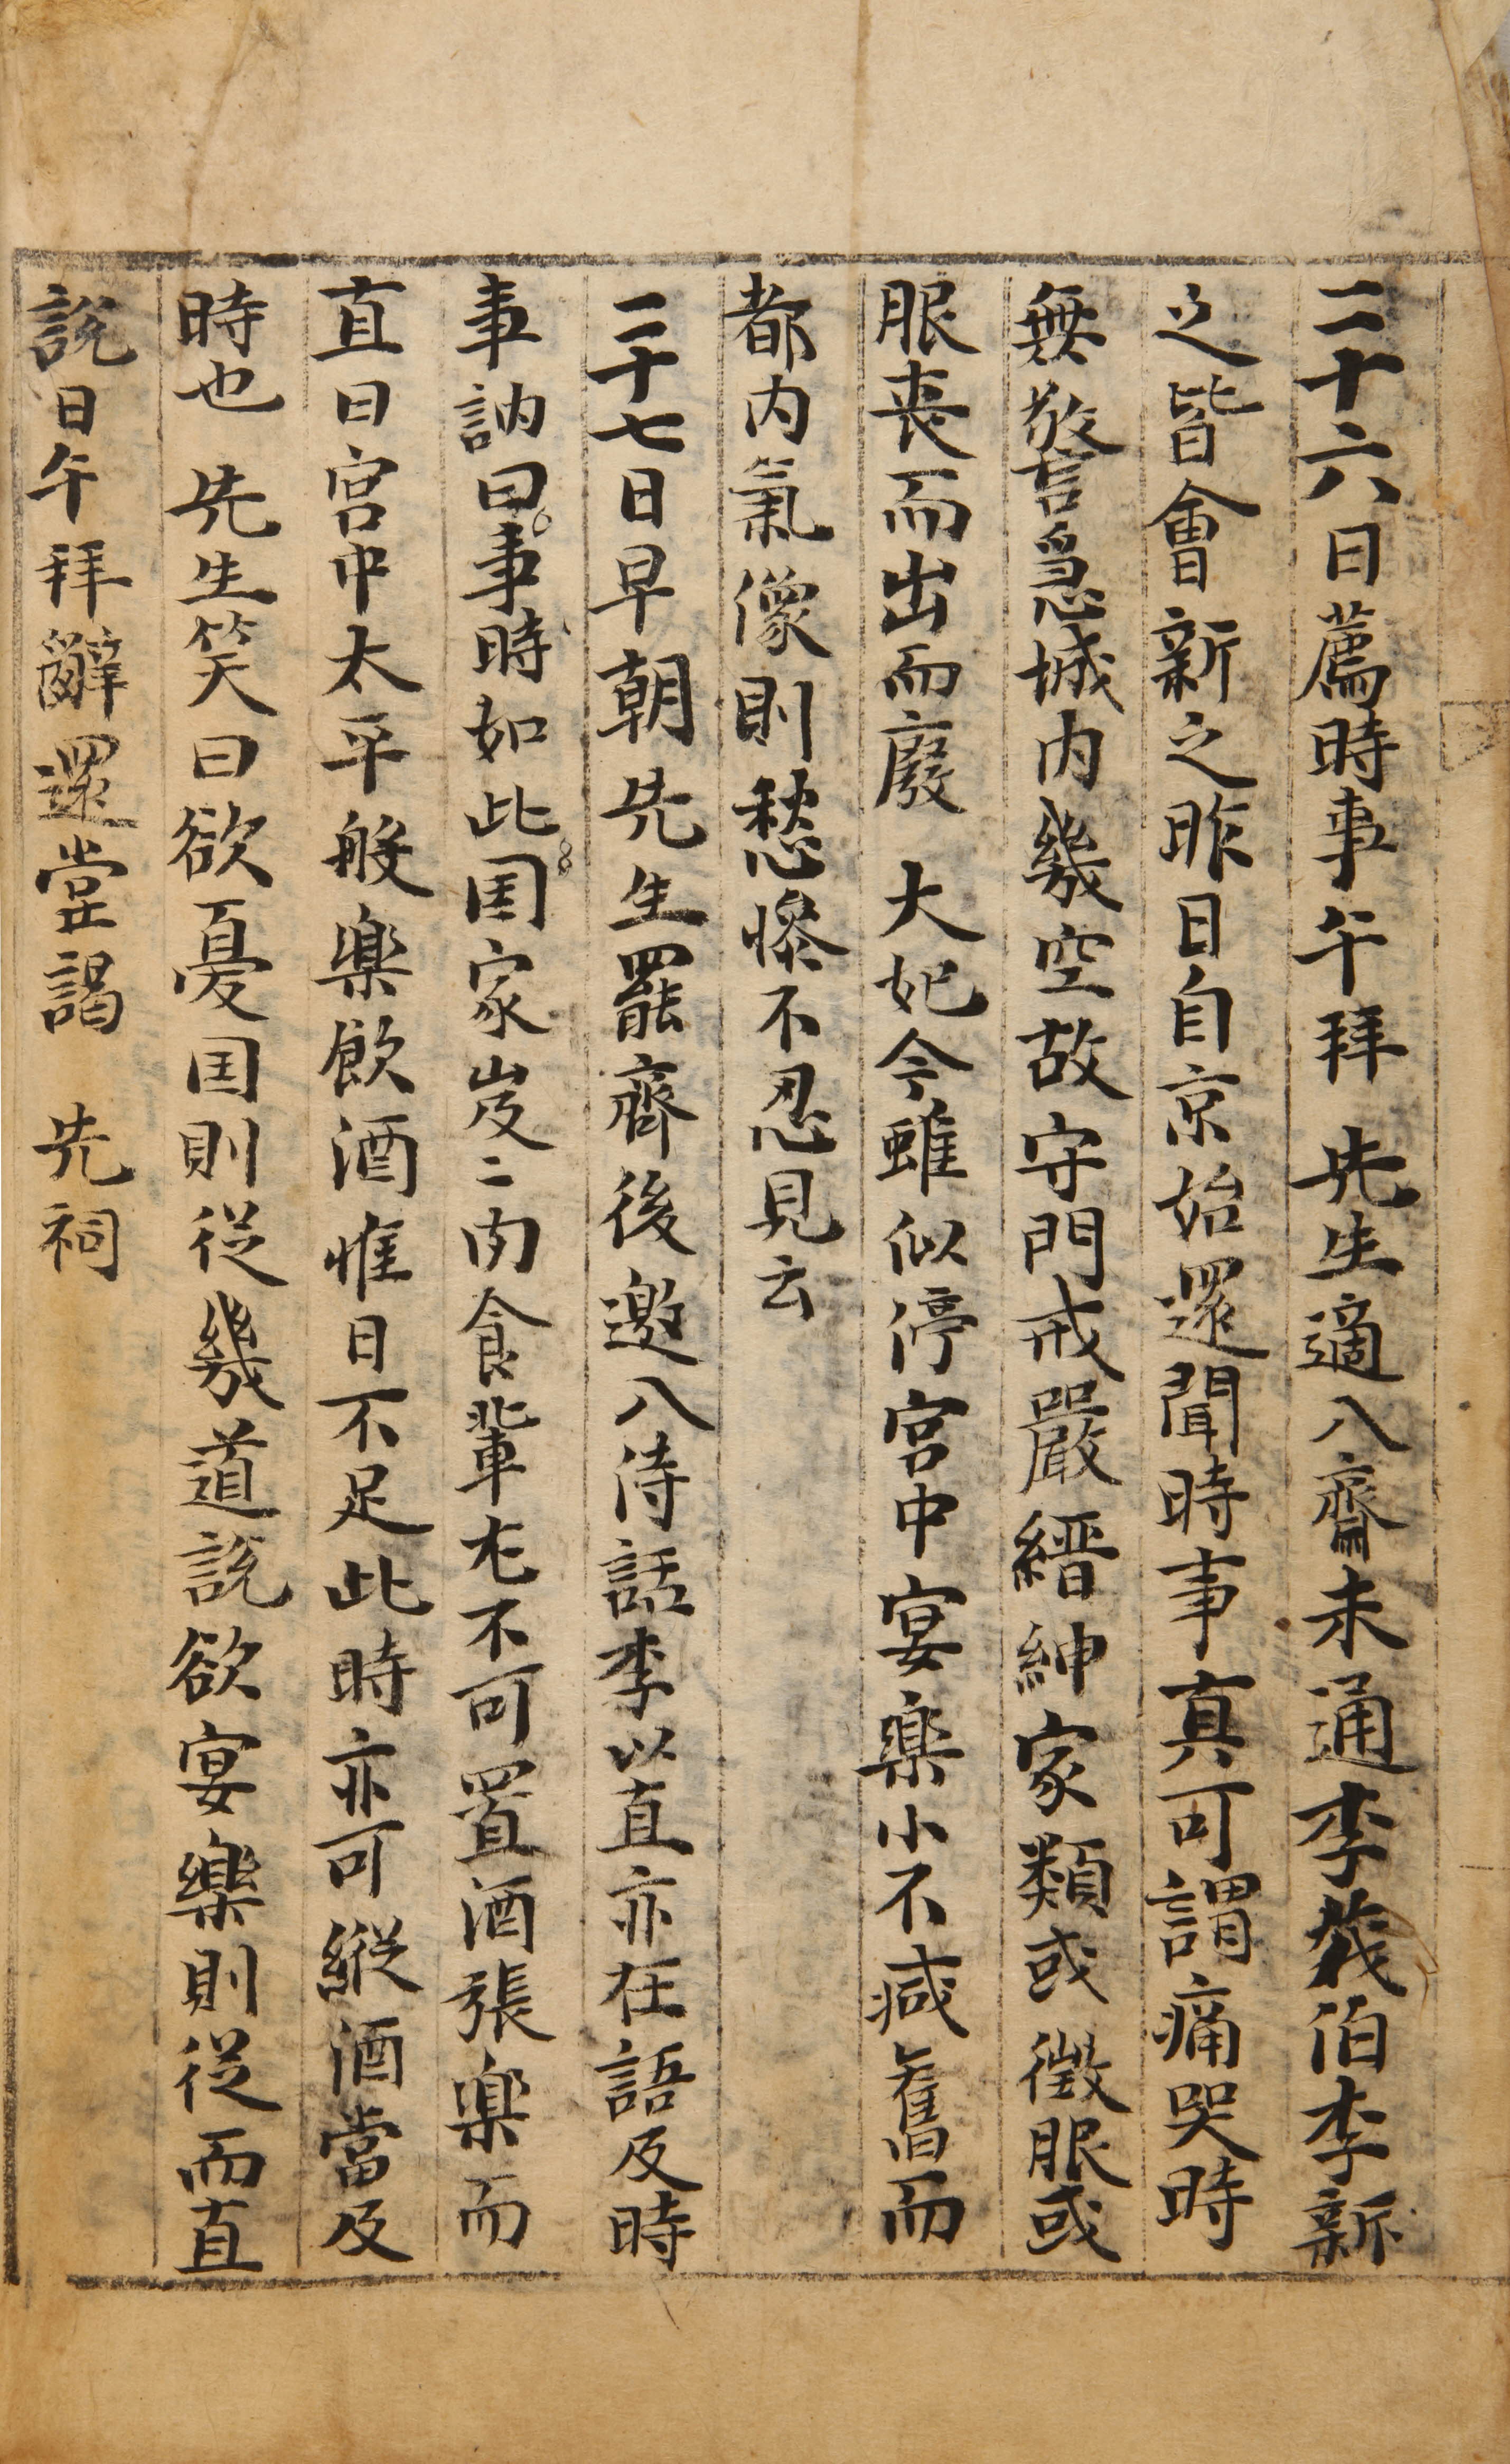 二十六日薦時事午拜 先生適入齋未通李茂伯李新
之皆會新之昨日自京始還聞時事真可謂痛哭時
無警急城内幾空故守門戒嚴縉紳家類或徵服或
服喪而出而廢 大妃今雖似停宮中宴樂小不减舊而
都内氣像則愁慘不忍見云
二十七日早朝 先生罷齊後邀入待話李以直亦在語及時
事訥曰事時如此国家岌〻肉食輩尤不可置酒張樂而
直曰宮中太平般樂飲酒惟日不足此時亦可縱酒當及
時也 先生笑曰欲憂国則從幾道說欲宴樂則從而直
說日午拜辭還堂謁 先祠